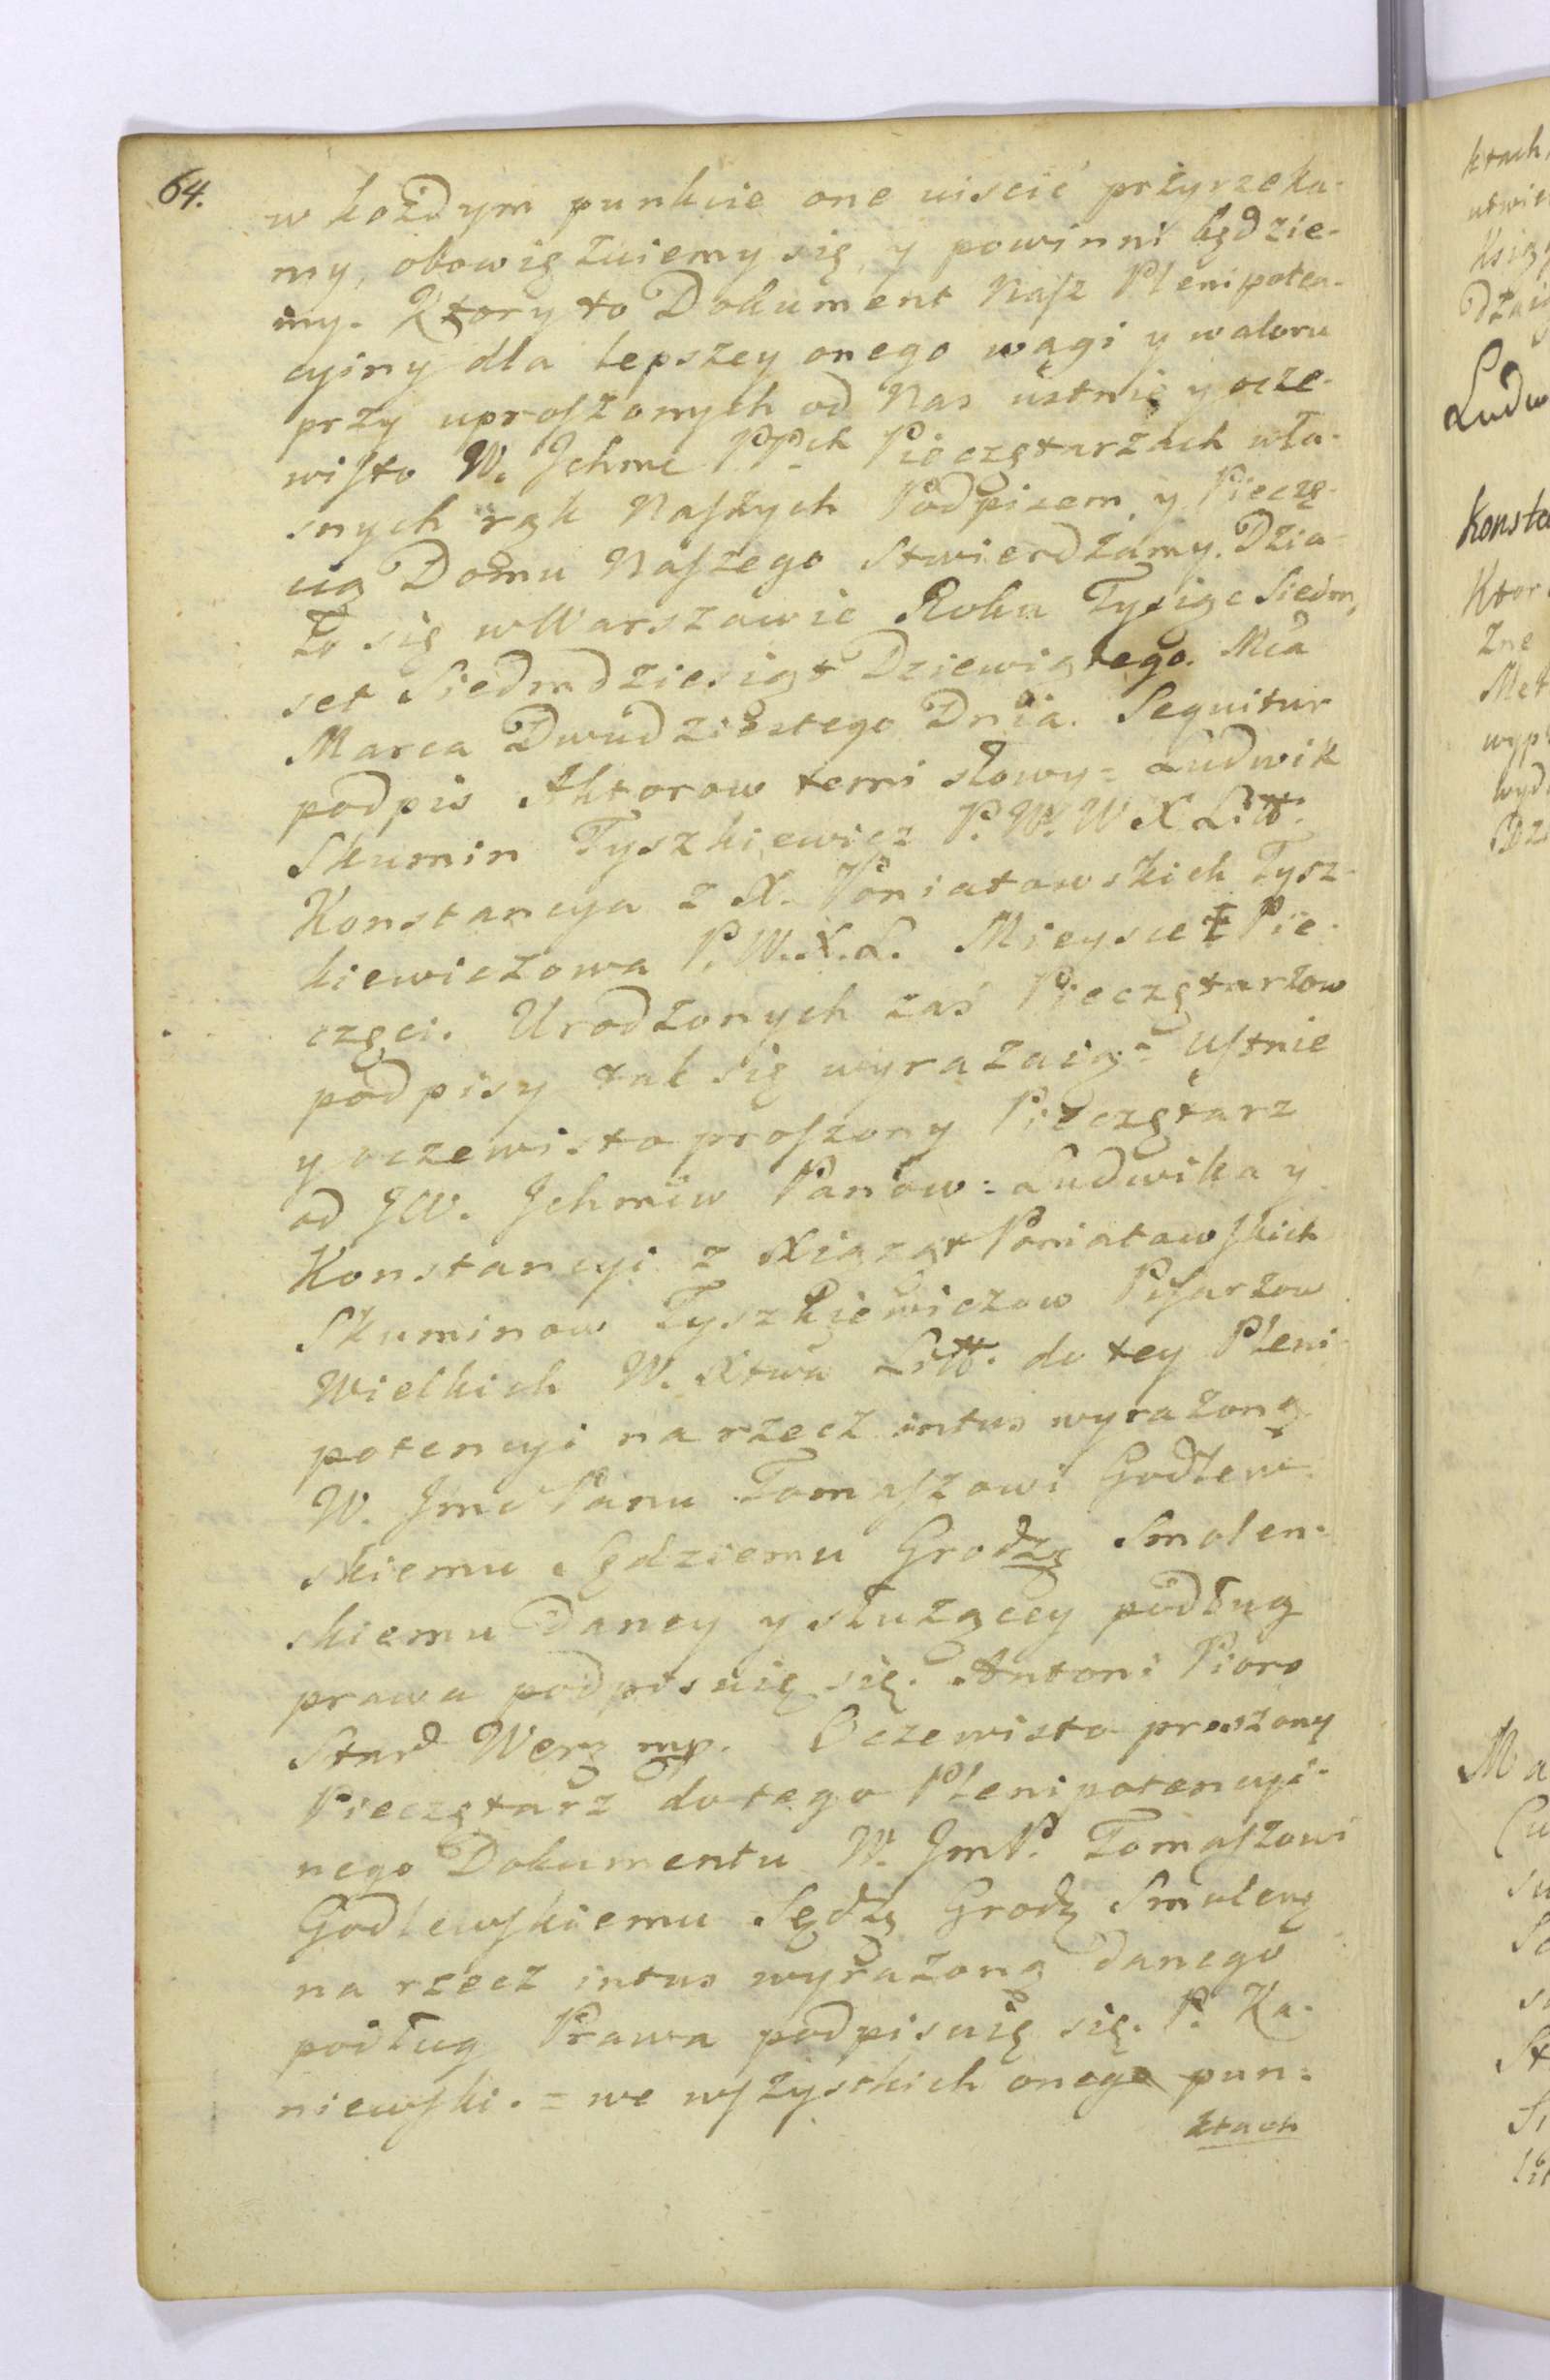 64.
w każdym punkcie one uiscić przyrzeka-
my, obowięzuiemy się, y powinni będzie-
my. Ktory to Dokument Nasz Plenipoten-
cyiny dla lepszey onego wagi y waloru
przy uproszonych od Nas ustnie y ocze-
wisto W. Jchmc PPch Pieczętarzach wła-
snych rąk Naszych Podpisem y Pieczę-
cią Domu Naszego Stwierdzamy. Dzia-
ło się w Warszawie Roku Tysiąc Siedm
set Siedmdziesiąt Dziewiątego. Mca
Marca Dwudziestego Dnia. Sequitur
podpis Aktorow temi słowy = Ludwik
Skumin Tyszkiewicz P. W. W X Litt.
Konstancya z X. Poniatowskich Tysz-
kiewiczowa P. W. X. L. Mieysce Pie-
częci. Urodzonych zaś Pieczętarzow
podpisy tak się wyrazaią = Ustnie
y oczewisto proszony Pieczętarz
od JW. Jchmciw Panow: Ludwika y
Konstancyi z Xiąząt Poniatowskich
Skuminow Tyszkiewiczow Pisarzow
Wielkich W. Xtwa Litt. do tey Pleni-
potencyi na rzecz intus wyrazoną
W. Jmć Panu Tomaszowi Godlew-
skiemu Sędziemu Grodz Smolen-
skiemu Daney y słuzącey podług
prawa podpisuię się. Antoni Pioro
Star Werz mp. Oczewisto proszony
Pieczętarz do tego Plenipotencyi-
nego Dokumentu W. JmP. Tomaszowi
Godlewskiemu Sędz Grodz Smolen
na rzecz intus wyrażoną danego
podług Prawa podpisuię się. P. Ka-
niewski. = we wszyskich onego pun-
ktach
ktach
Ludw
Konsta
Ktor
zne
Met
wyp
wyd
Ma